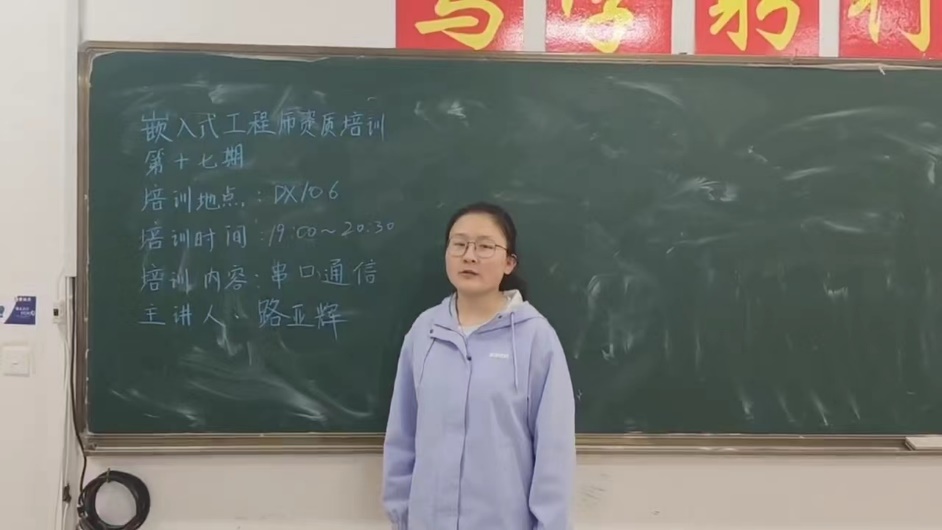 嵌入式工程师资质培训
第十七期
培训地点:DX106
培训时间:19:00~20:30
培训内容:串口通信
主讲人:路亚辉